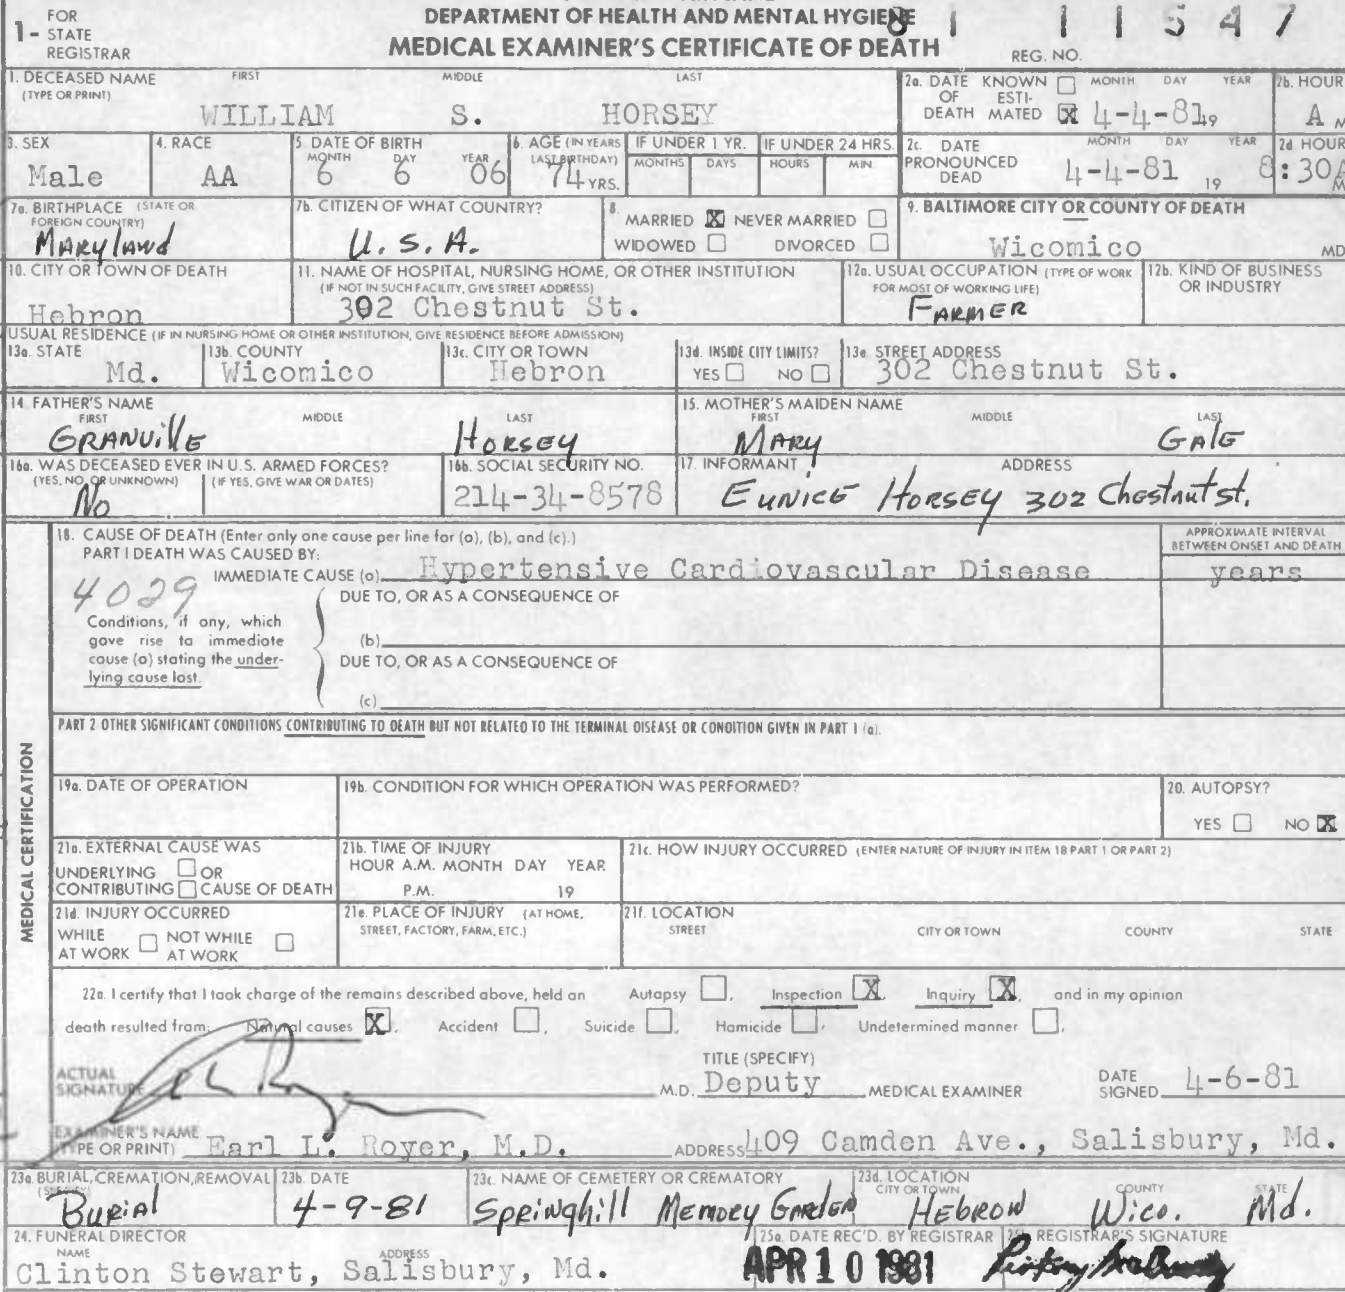 FOR
1- STATE
REGISTRAR
DEPARTMENT OF HEALTH AND MENTAL HYGIENE
MEDICAL EXAMINER'S CERTIFICATE OF DEATH
81 11547
REG. NO.
1. DECEASED NAME FIRST MIDDLE LAST
(TYPE OR PRINT)
WILLIAM S. HORSEY
2a. DATE KNOWN MONTH DAY YEAR
OF ESTI-
DEATH MATED X 4-4-81 19
2b. HOUR
A M
3. SEX
Male
4. RACE
AA
5. DATE OF BIRTH
MONTH DAY YEAR
6 6 06
6. AGE (IN YEARS
LAST BIRTHDAY)
74 YRS.
IF UNDER 1 YR.
MONTHS DAYS
IF UNDER 24 HRS.
HOURS MIN
2c. DATE MONTH DAY YEAR
PRONOUNCED
DEAD 4-4-81 19
2d HOUR
8:30A
M
7a. BIRTHPLACE (STATE OR
FOREIGN COUNTRY)
MARYLAND
7b. CITIZEN OF WHAT COUNTRY?
U.S.A.
8.
MARRIED X NEVER MARRIED
WIDOWED DIVORCED
9. BALTIMORE CITY OR COUNTY OF DEATH
Wicomico MD
10. CITY OR TOWN OF DEATH
Hebron
11. NAME OF HOSPITAL, NURSING HOME, OR OTHER INSTITUTION
(IF NOT IN SUCH FACILITY, GIVE STREET ADDRESS)
302 Chestnut St.
12a. USUAL OCCUPATION (TYPE OF WORK
FOR MOST OF WORKING LIFE)
FARMER
12b. KIND OF BUSINESS
OR INDUSTRY
USUAL RESIDENCE (IF IN NURSING HOME OR OTHER INSTITUTION, GIVE RESIDENCE BEFORE ADMISSION)
13a. STATE
Md.
13b. COUNTY
Wicomico
13c. CITY OR TOWN
Hebron
13d. INSIDE CITY LIMITS?
YES NO
13e. STREET ADDRESS
302 Chestnut St.
14. FATHER'S NAME
FIRST MIDDLE LAST
GRANVILLE HORSEY
15. MOTHER'S MAIDEN NAME
FIRST MIDDLE LAST
MARY GALE
16a. WAS DECEASED EVER IN U.S. ARMED FORCES?
(YES, NO, OR UNKNOWN) (IF YES, GIVE WAR OR DATES)
No
16b. SOCIAL SECURITY NO.
214-34-8578
17. INFORMANT ADDRESS
EUNICE HORSEY 302 Chestnut st.
MEDICAL CERTIFICATION
18. CAUSE OF DEATH (Enter only one cause per line for (a), (b), and (c).)
PART I DEATH WAS CAUSED BY:
IMMEDIATE CAUSE (a) Hypertensive Cardiovascular Disease
APPROXIMATE INTERVAL
BETWEEN ONSET AND DEATH
years
4029
DUE TO, OR AS A CONSEQUENCE OF
Conditions, if any, which
gave rise to immediate
cause (a) stating the under-
lying cause last.
(b)
DUE TO, OR AS A CONSEQUENCE OF
(c)
PART 2 OTHER SIGNIFICANT CONDITIONS CONTRIBUTING TO DEATH BUT NOT RELATED TO THE TERMINAL DISEASE OR CONDITION GIVEN IN PART 1 (a).
19a. DATE OF OPERATION
19b. CONDITION FOR WHICH OPERATION WAS PERFORMED?
20. AUTOPSY?
YES NO X
21a. EXTERNAL CAUSE WAS
UNDERLYING OR
CONTRIBUTING CAUSE OF DEATH
21b. TIME OF INJURY
HOUR A.M. MONTH DAY YEAR
P.M. 19
21c. HOW INJURY OCCURRED (ENTER NATURE OF INJURY IN ITEM 18 PART 1 OR PART 2)
21d. INJURY OCCURRED
WHILE NOT WHILE
AT WORK AT WORK
21e. PLACE OF INJURY (AT HOME,
STREET, FACTORY, FARM, ETC.)
21f. LOCATION
STREET CITY OR TOWN COUNTY STATE
22a. I certify that I took charge of the remains described above, held an Autopsy , Inspection X, Inquiry X, and in my opinion
death resulted from: Natural causes X, Accident , Suicide , Homicide , Undetermined manner ,
ACTUAL
SIGNATURE
M.D.
TITLE (SPECIFY)
Deputy MEDICAL EXAMINER
DATE
SIGNED 4-6-81
EXAMINER'S NAME
(TYPE OR PRINT) Earl L. Royer, M.D. ADDRESS 409 Camden Ave., Salisbury, Md.
23a. BURIAL, CREMATION, REMOVAL
(SPECIFY)
BURIAL
23b. DATE
4-9-81
23c. NAME OF CEMETERY OR CREMATORY
Springhill MEMORY GARDEN
23d. LOCATION
CITY OR TOWN COUNTY STATE
HEBRON Wico. Md.
24. FUNERAL DIRECTOR
NAME ADDRESS
Clinton Stewart, Salisbury, Md.
25a. DATE REC'D. BY REGISTRAR
APR 10 1981
25b. REGISTRAR'S SIGNATURE